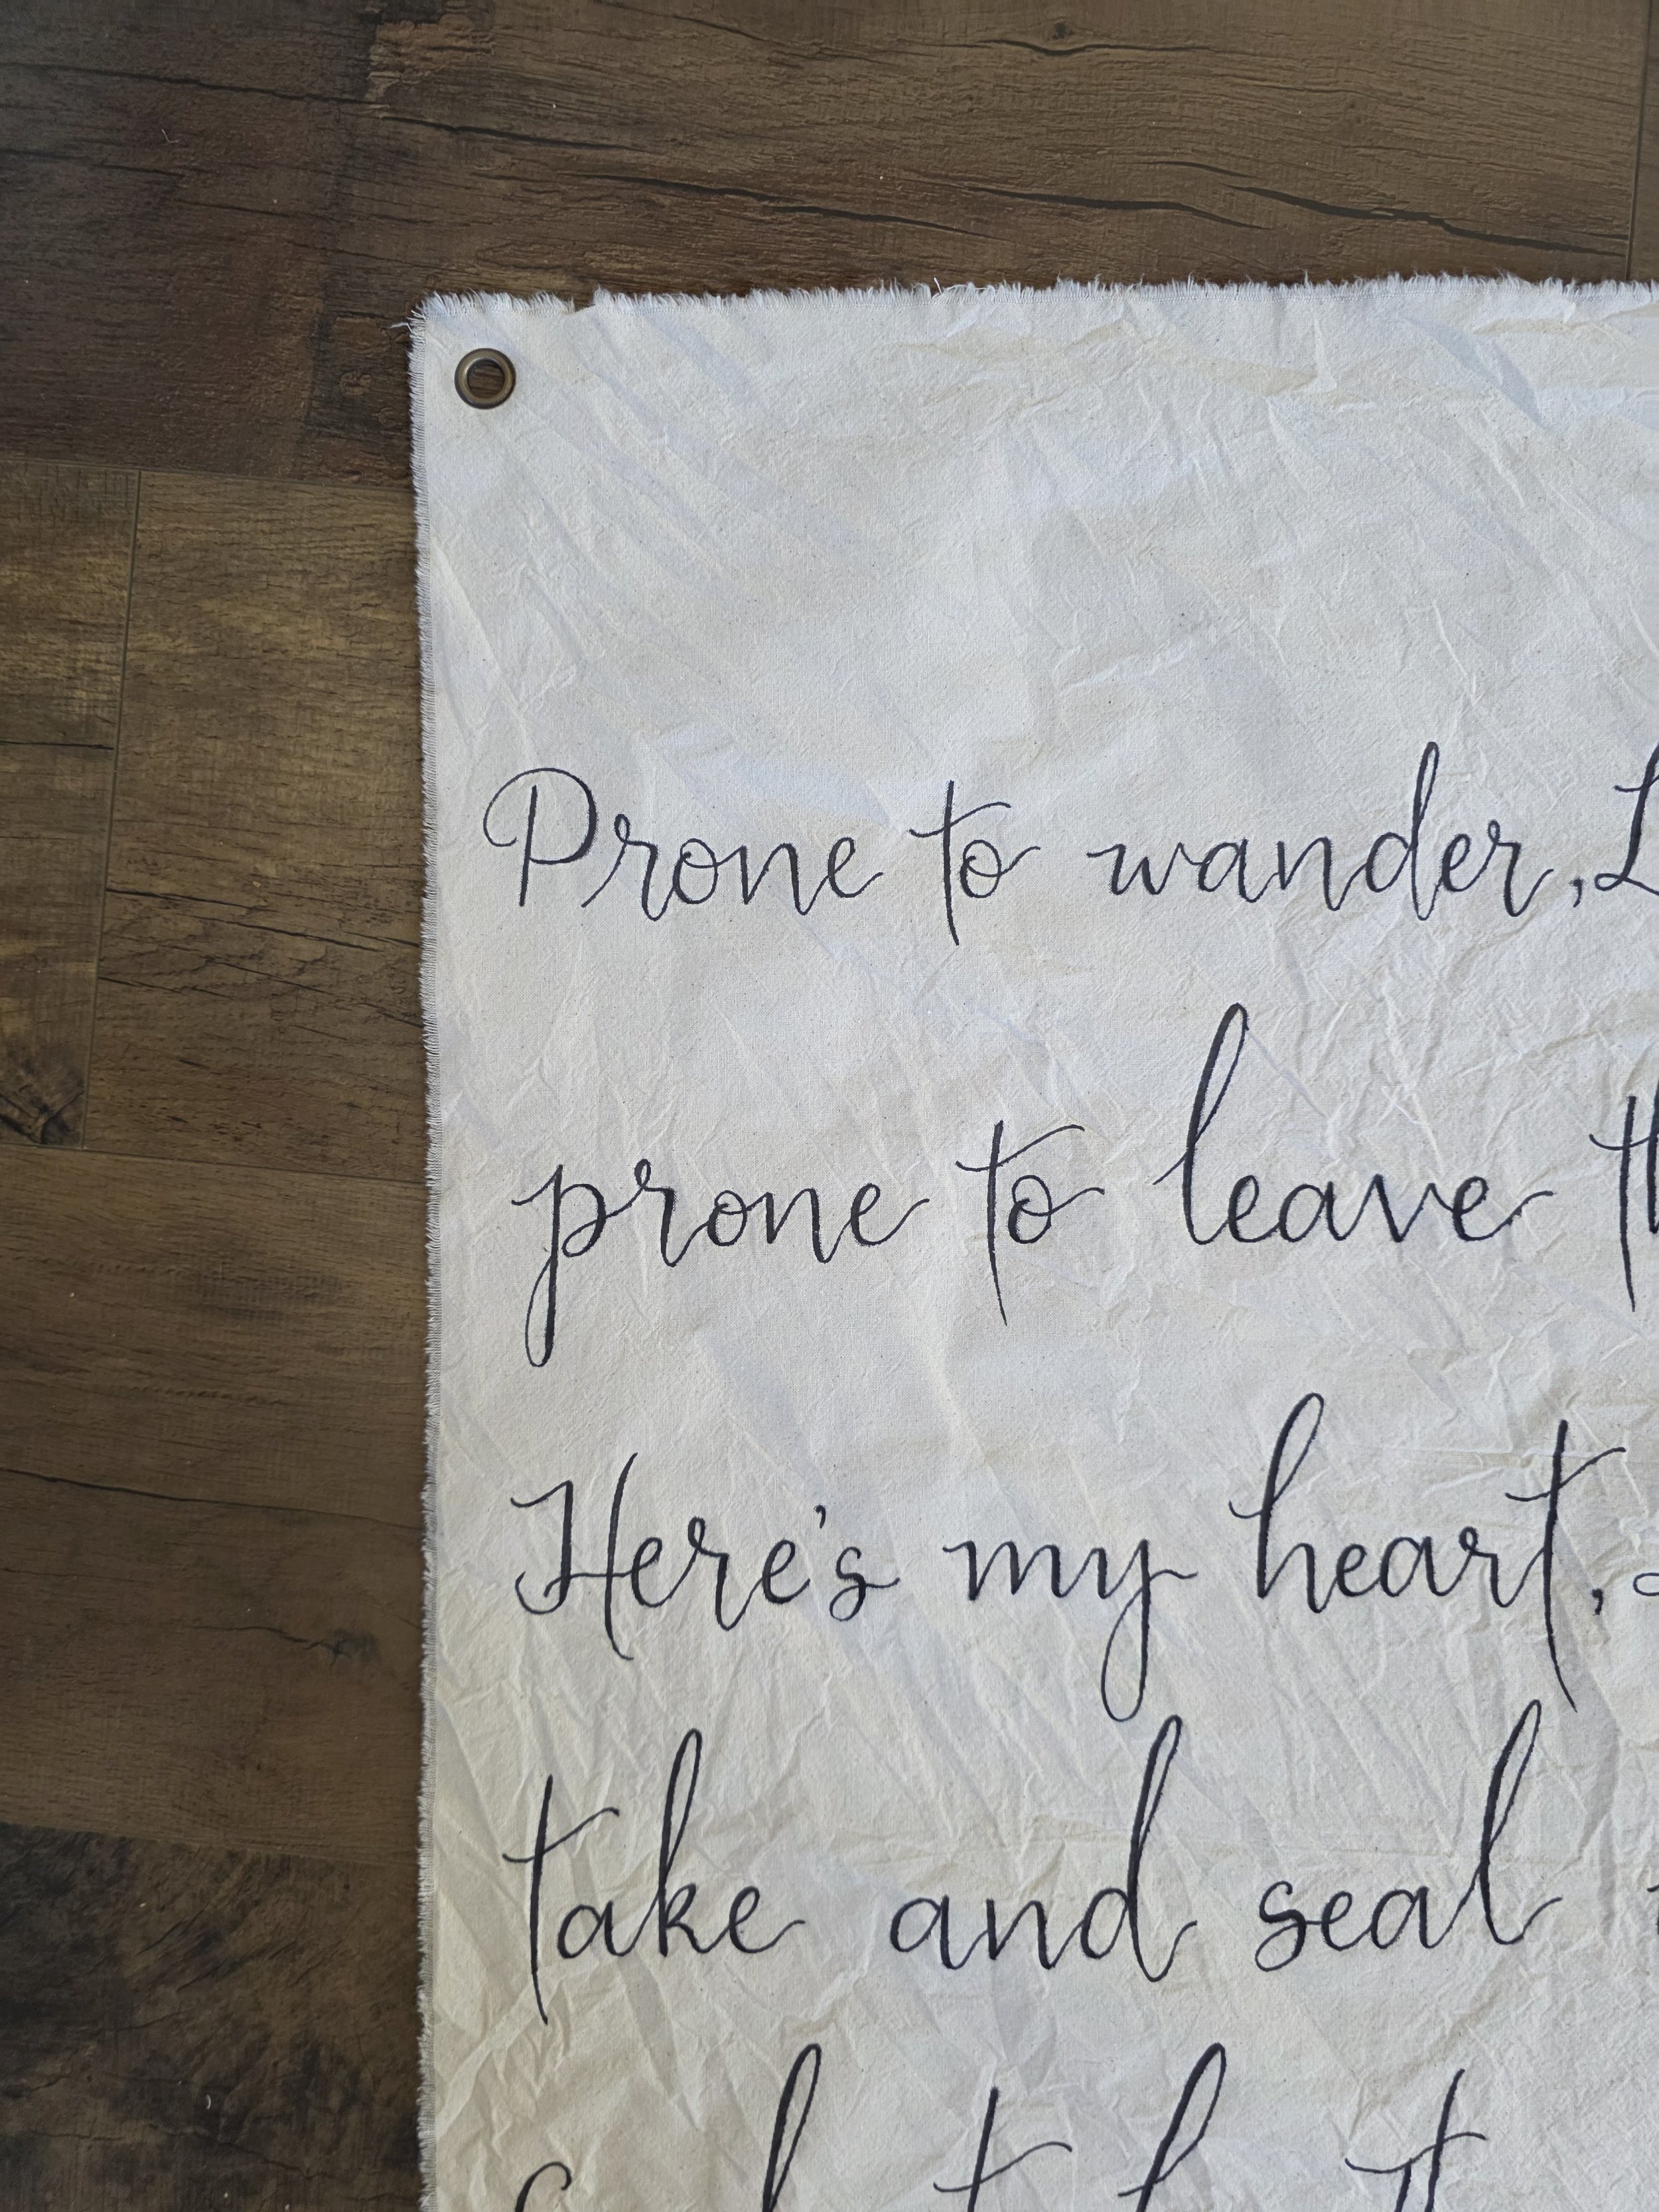 Prone to wander, L
prone to leave th
Here's my heart,
take and seal